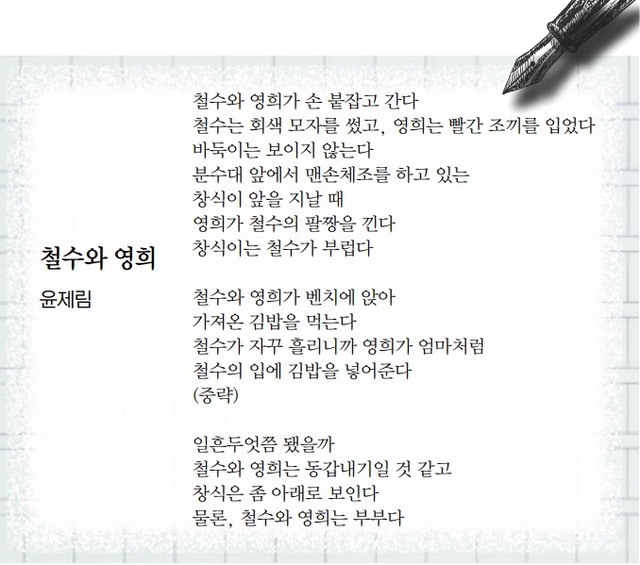 철수와 영희
윤제림
철수와 영희가 손 붙잡고 간다
철수는 회색 모자를 썼고, 영희는 빨간 조끼를 입었다
바둑이는 보이지 않는다
분수대 앞에서 맨손체조를 하고 있는
창식이 앞을 지날 때
영희가 철수의 팔짱을 낀다
창식이는 철수가 부럽다
철수와 영희가 벤치에 앉아
가져온 김밥을 먹는다
철수가 자꾸 흘리니까 영희가 엄마처럼
철수의 입에 김밥을 넣어준다
(중략)
일흔두엇쯤 됐을까
철수와 영희는 동갑내기일 것 같고
창식은 좀 아래로 보인다
물론, 철수와 영희는 부부다